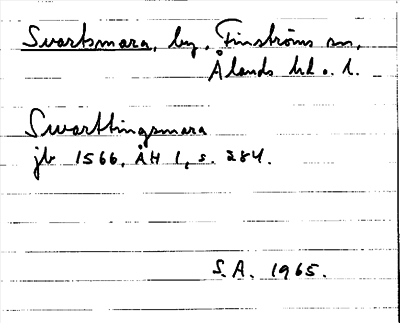 Svartsmara, by, Finströms sn,
Ålands hd o. l.
Swarttingsmara
jb 1566, ÅH 1, s. 284.
S.A. 1965.